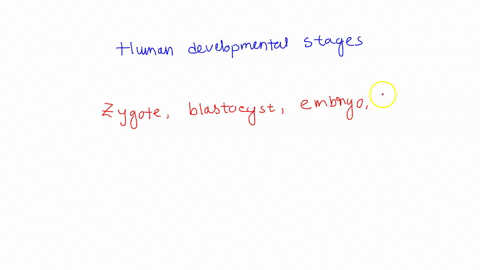 Human developmental stages
Zygote, blastocyst, embryo,